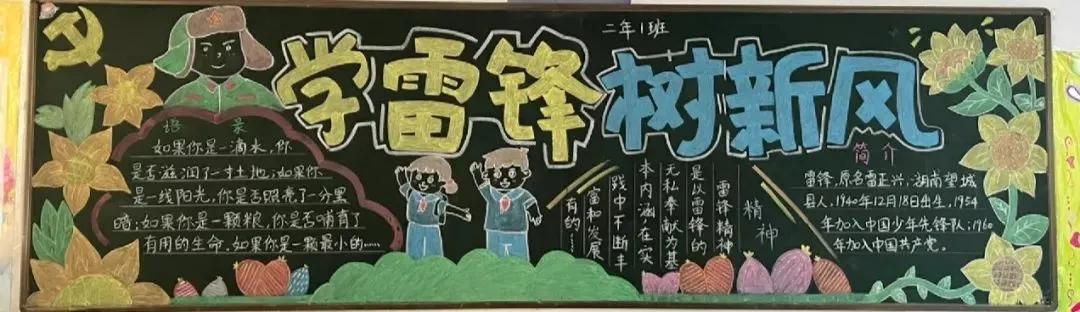 二年1班
学雷锋 树新风
语录
如果你是一滴水,你
是否滋润了一寸土地;如果你
是一线阳光,你是否照亮了一分黑
暗;如果你是一颗粮,你是否哺育了
有用的生命,如果你是一颗最小的……
精神
雷锋精神
是以雷锋的
无私奉献为基
本内涵在实
践中不断丰
富和发展
有的……
简介
雷锋,原名雷正兴,湖南望城
县人,1940年12月18日出生,1954
年加入中国少年先锋队;1960
年加入中国共产党。